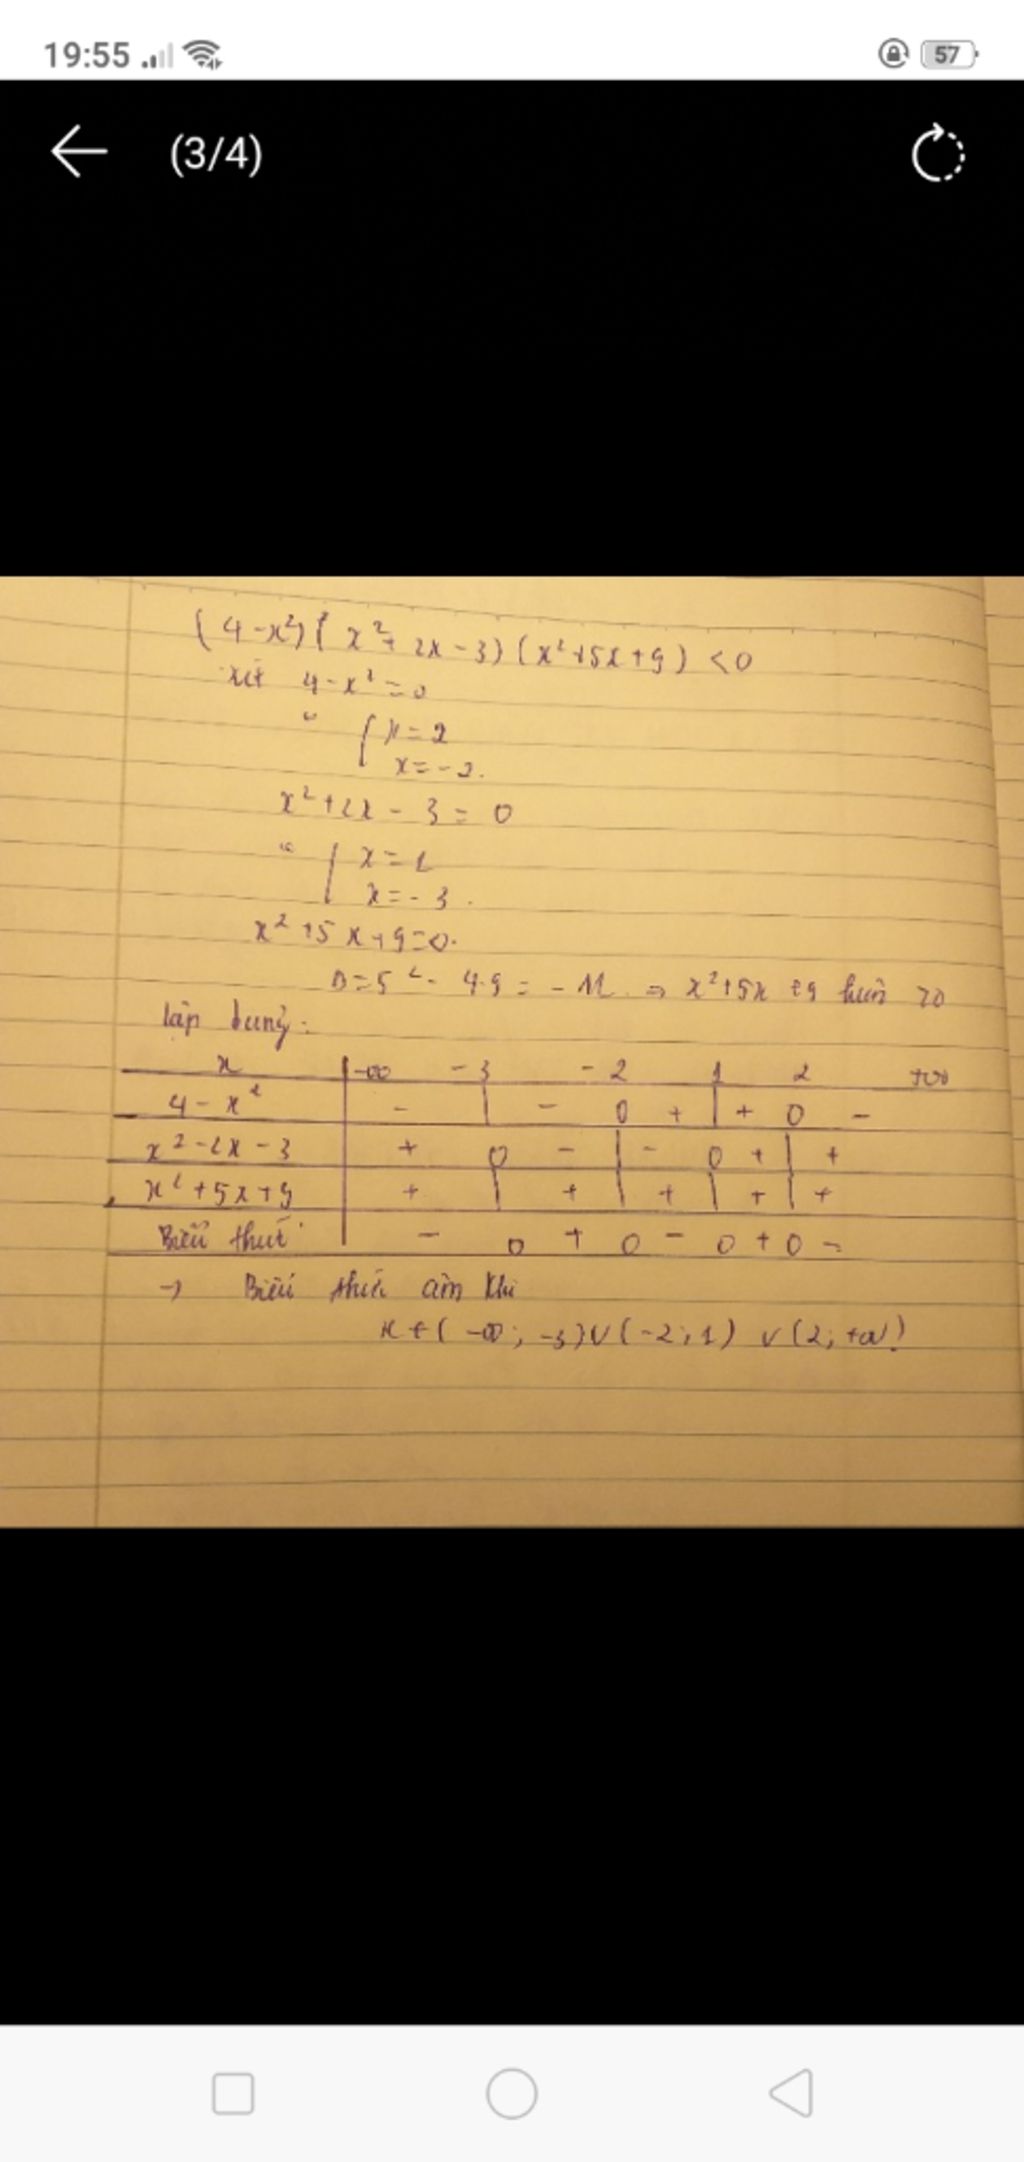 19:55
57
(3/4)
(4-x²)(x²+2x-3)(x²+5x+9) <0
xét 4-x²=0
x=2
x=-2.
x²+2x-3=0
x=1
x=-3.
x²+5x+9=0.
Δ=5²-4.9=-11 ⇒ x²+5x+9 luôn >0
lập bảng:
x -∞ -3 -2 1 2 +∞
4-x² - | - 0 + | + 0 -
x²-2x-3 + 0 - | - 0 + | +
x²+5x+9 + | + | + | + | +
Biểu thức - 0 + 0 - 0 + 0 -
→ Biểu thức âm khi
x∈(-∞;-3)∪(-2;1)∪(2;+∞)